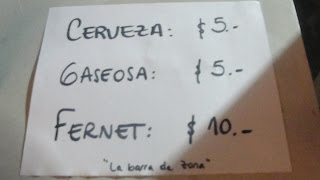 CERVEZA: $5.-
GASEOSA: $5.-
FERNET: $10.-
"La barra de zona"